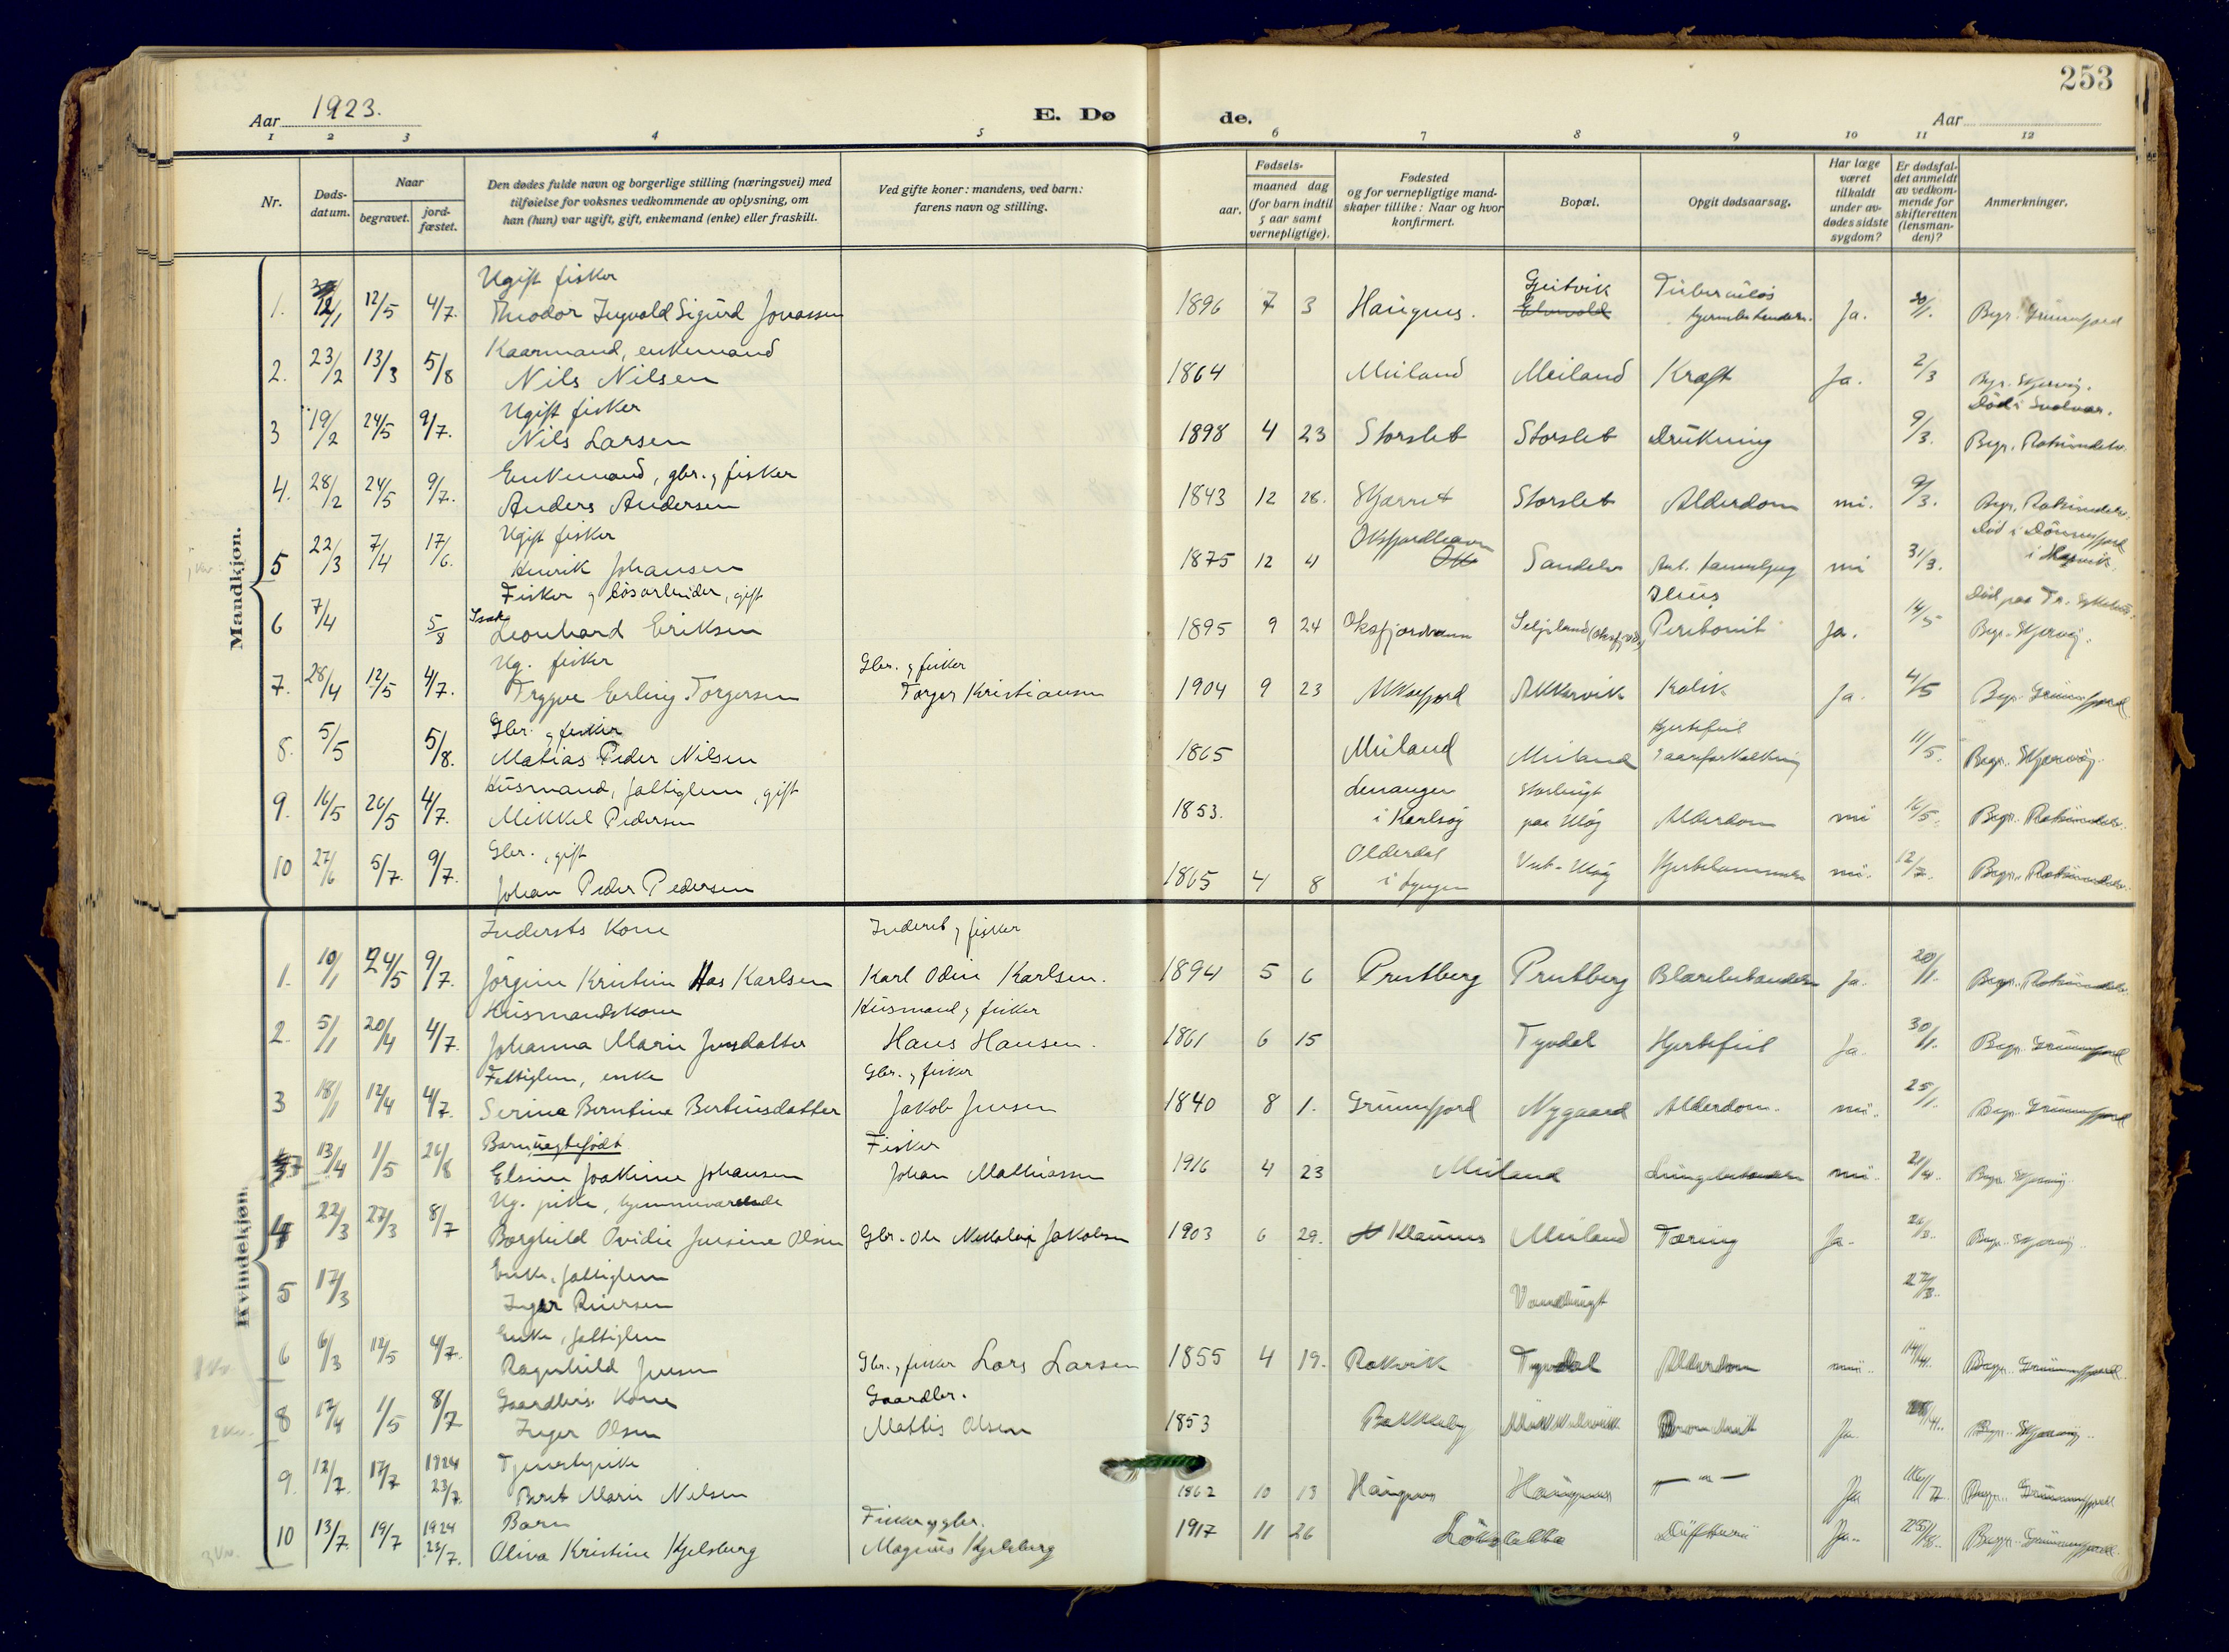 253
Aar 1923.
E. Dø
de.
Aar
1 2 3 4 5 6 7 8 9 10 11 12
Nr.
Døds-
datum.
Naar
begravet.
jord-
fæstet.
Den dødes fulde navn og borgerlige stilling (næringsvei) med
tilføielse for voksnes vedkommende av oplysning, om
han (hun) var ugift, gift, enkemand (enke) eller fraskilt.
Ved gifte koner: mandens, ved barn:
farens navn og stilling.
Fødsels-
aar.
maaned dag
(for barn indtil
5 aar samt
vernepligtige).
Fødested
og for vernepligtige mand-
skaper tillike: Naar og hvor
konfirmert.
Bopæl.
Opgit dødsaarsag.
Har læge
været
tilkaldt
under av-
dødes sidste
sygdom?
Er dødsfal-
det anmeldt
av vedkom-
mende for
skifteretten
(lensman-
den)?
Anmerkninger.
Mandkjøn.
Ugift fisker Geitvik Tuberculøs
1. 12/5 4/7. Theodor Ingvald Sigurd Jonassen 1896 7 3 Haugnes. Ja. 20/1. Begr. Grunnfjord
Kaarmand, enkemand
2. 23/2 13/3 5/8 Nils Nilsen 1864 Meiland Meiland Kræft Ja. 2/3 Begr. Skjervøy.
Ugift fisker Død i Svolvær.
3 19/2 24/5 9/7. Nils Larsen 1898 4 23 Storslet Storslet Drukning 9/3. Begr. Rotsundelv.
Enkemand, gbr. og fisker
4. 28/2 24/5 9/7. Anders Andersen 1843 12 28. Storslet Alderdom nei. 9/3. Begr. Rotsundelv.
Ugift fisker Oksfjordhavn Død i
5 22/3 7/4 17/6. Henrik Johansen 1875 12 4 Sandelv nei 31/3. i Hasvik.
Fisker og løsarbeider, gift Ileus
6 7/4 5/8 Isak Leonhard Eriksen 1895 9 24 Oksfjordvann Peritonit Ja. 14/5 Begr. Skjervøy.
Ug. fisker Gbr. og fisker
7. 28/4 12/5 4/7. Trygve Erling Torgersen Torger Kristiansen 1904 9 23 Akkarfjord Akkarvik Kolik Ja. 4/5 Begr. Grunnfjord
Gbr. og fisker Hjertefeil
8. 5/5 5/8. Matias Peder Nilsen 1865 Meiland Meiland aareforkalkning 11/5. Begr. Skjervøy.
Husmand, fattiglem, gift
9. 16/5 26/5 4/7. Mikkel Pedersen 1853. i Karlsøy paa Uløy Alderdom nei 16/5. Begr. Rotsundelv.
Gbr., gift Olderdal
10 27/6 5/7. 9/7. Johan Peder Pedersen 1865 4 8 i Lyngen Hjertelammelse nei. 12/7. Begr. Rotsundelv.
Kvindekjøn.
Indersts kone Inderst og fisker
1. 10/1 24/5 9/7. Jörgine Kristine Has Karlsen Karl Odin Karlsen. 1894 5 6 Prestberg Prestberg Blærebetændelse Ja. 20/1. Begr. Rotsundelv.
Husmandskone Husmand og fisker
2. 5/1 20/4 4/7. Johanna Marie Jensdatter Hans Hansen. 1861 6 15 Tyvdal Hjertefeil Ja. 30/1. Begr. Grunnfjord
Fattiglem, enke Gbr. og fisker
3 18/1 12/4 4/7. Serina Berntine Bertinusdatter Jakob Jensen 1840 8 1. Grunnfjord Nygaard Alderdom. nei. 25/1. Begr. Grunnfjord
Barn uegtefødt Fisker
13/4 1/5 26/8 Elsine Joakime Johansen Johan Mathiassen 1916 4 23 Meiland Lungebetændelse nei. 21/4. Begr. Skjervøy.
Ug. pike, hjemmeværende
4 22/3 27/3 8/7 Borghild Ovidie Jensine Olsen Gbr. Ole Nikolai Jakobsen 1903 6 29. Klaunes Meiland Tæring Ja. 26/3. Begr. Skjervøy.
Enke, fattiglem
5 17/3 Inger Reiersen 27/3.
Enke, fattiglem
6 6/3 12/5 4/7. Ragnhild Jensen Gbr. og fisker Lars Larsen 1855 4 19. Rakvik Tyvdal Alderdom nei. 14/4. Begr. Grunnfjord
Gaardbrs. kone Gaardbr.
8 17/4 1/5 8/7 Inger Olsen Mattis Olsen 1853 Bakkeby Ja. Begr. Skjervøy.
1924 Tjenestepike
9. 12/7. 17/7 23/7. Berit Marie Nilsen 1862 10 13 Haugnes Haugnes — " — Ja 16/7. Begr. Grunnfjord
1924 Barn Fisker og gbr.
10 13/7. 19/7 23/7. Oliva Kristine Kjelsberg Magnus Kjelsberg 1917 11 26 Løkslatta Difteri Ja. Begr. Grunnfjord.